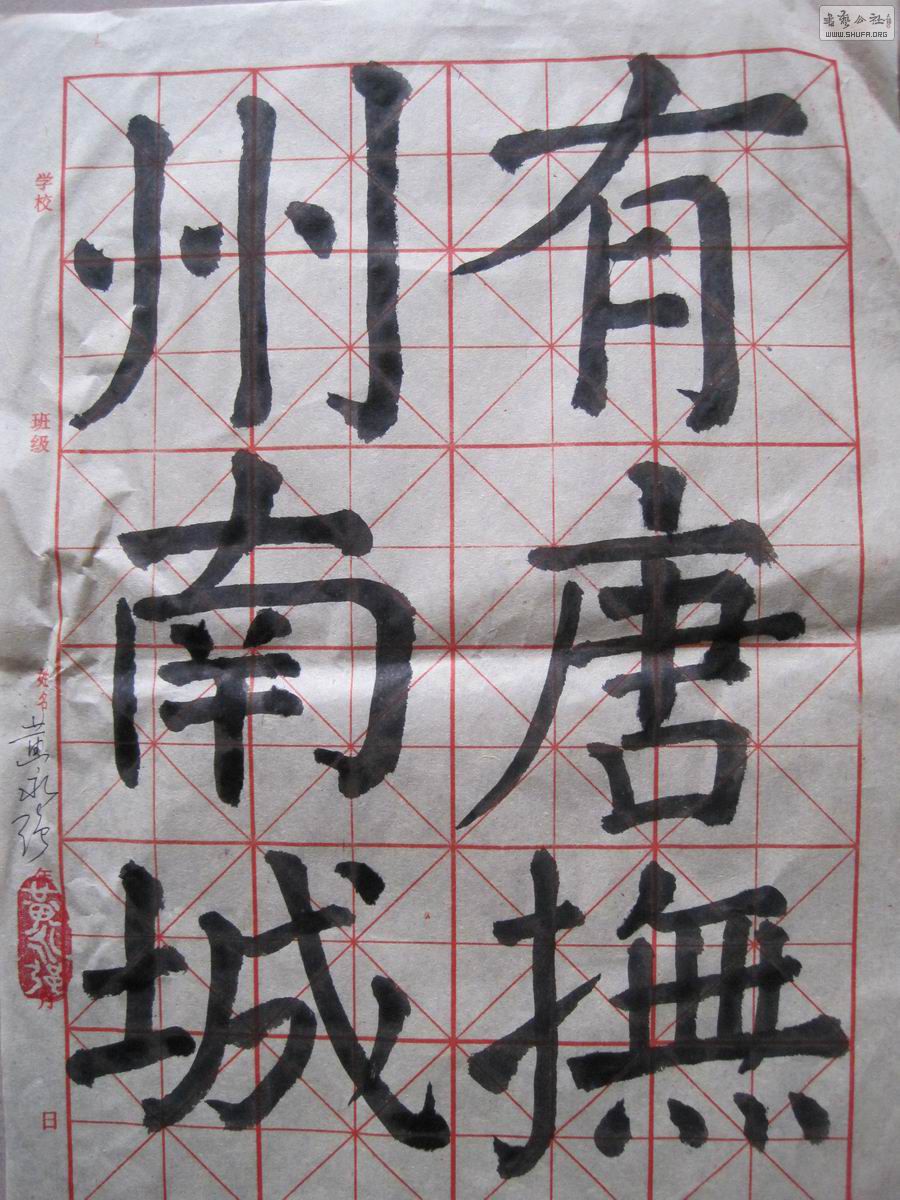 有唐撫
州南城
学校
班级
姓名
黄永强
年
黄永强
月
日
书艺公社
WWW.SHUFA.ORG